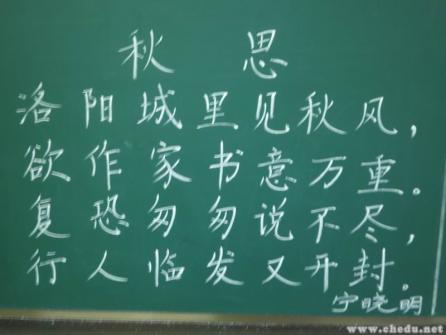 秋思
洛阳城里见秋风，
欲作家书意万重。
复恐匆匆说不尽，
行人临发又开封。
宁晓明
www.chedu.net